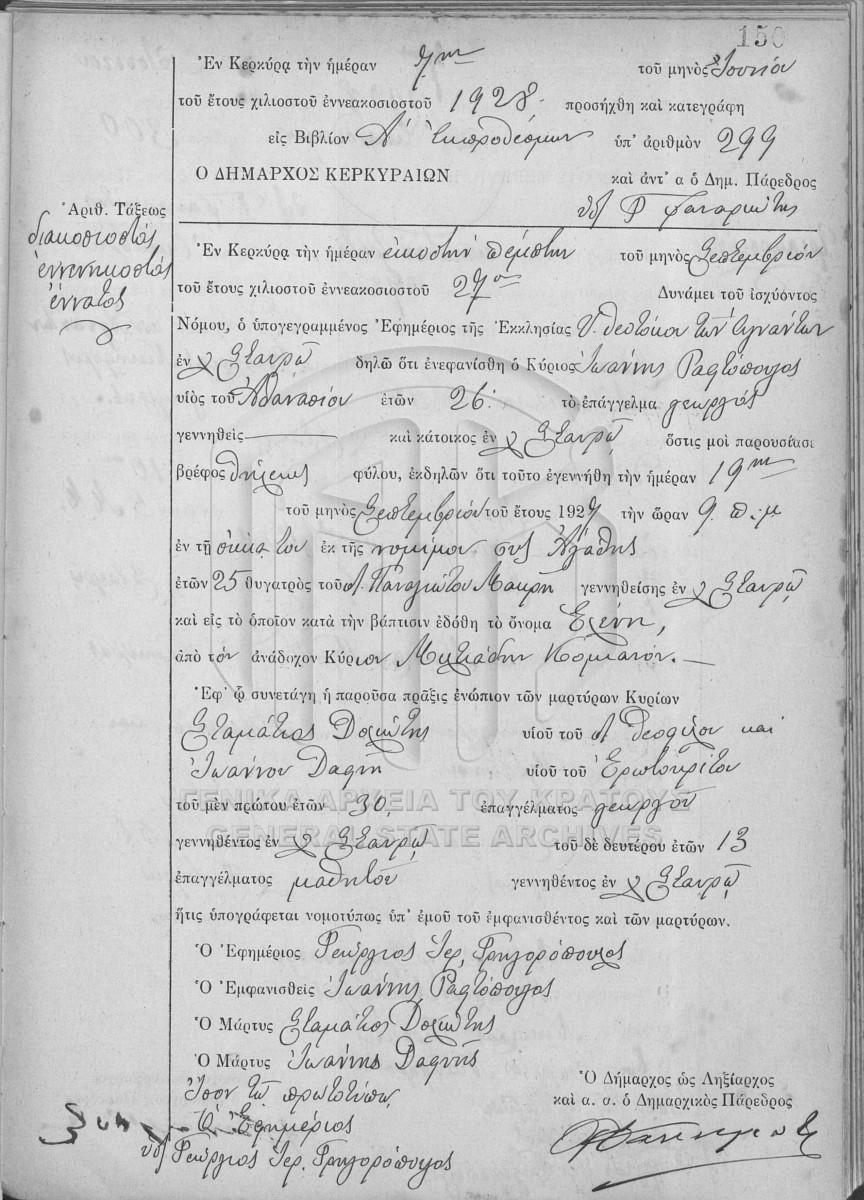 150
Ἐν Κερκύρᾳ τὴν ἡμέραν 7ην τοῦ μηνὸς Ἰουνίου
τοῦ ἔτους χιλιοστοῦ ἐννεακοσιοστοῦ 1928 προσήχθη καὶ κατεγράφη
εἰς Βιβλίον Α΄ Ἐκπροθέσμων ὑπ' ἀριθμὸν 299
Ο ΔΗΜΑΡΧΟΣ ΚΕΡΚΥΡΑΙΩΝ καὶ ἀντ' α ὁ Δημ. Πάρεδρος
Φαναριώτης
Ἀριθ. Τάξεως
διακοσιοστός
ἐννενηκοστός
ἔννατος
Ἐν Κερκύρᾳ τὴν ἡμέραν εἰκοστὴν πέμπτην τοῦ μηνὸς Σεπτεμβρίου
τοῦ ἔτους χιλιοστοῦ ἐννεακοσιοστοῦ 27ου Δυνάμει τοῦ ἰσχύοντος
Νόμου, ὁ ὑπογεγραμμένος Ἐφημέριος τῆς Ἐκκλησίας Υ. Θεοτόκου τῶν Ἁγνάντων
ἐν χ Σταυρῷ δηλῶ ὅτι ἐνεφανίσθη ὁ Κύριος Ἰωάννης Ραφτόπουλος
υἱὸς τοῦ Ἀθανασίου ἐτῶν 26 τὸ ἐπάγγελμα γεωργός
γεννηθεὶς — καὶ κάτοικος ἐν χ Σταυρῷ ὅστις μοι παρουσίασε
βρέφος θήλεως φύλου, ἐκδηλῶν ὅτι τοῦτο ἐγεννήθη τὴν ἡμέραν 19ην
τοῦ μηνὸς Σεπτεμβρίου τοῦ ἔτους 1927 τὴν ὥραν 9 π.μ
ἐν τῇ οἰκίᾳ του ἐκ τῆς νομίμου συζ Ἀγάθης
ἐτῶν 25 θυγατρὸς τοῦ Παναγιώτου Μακρῆ γεννηθείσης ἐν χ Σταυρῷ
καὶ εἰς τὸ ὁποῖον κατὰ τὴν βάπτισιν ἐδόθη τὸ ὄνομα Ἑλένη,
ἀπὸ τὸν ἀνάδοχον Κύριον Μιλτιάδην Κομιανόν. —
Ἐφ' ᾧ συνετάγη ἡ παροῦσα πρᾶξις ἐνώπιον τῶν μαρτύρων Κυρίων
Σταμάτιος Δολιώτης υἱοῦ τοῦ Θεοφίλου καὶ
Ἰωάννου Δαφνῆ υἱοῦ τοῦ Ἐρωτοκρίτου
τοῦ μὲν πρώτου ἐτῶν 30, ἐπαγγέλματος γεωργοῦ
ΓΕΝΙΚΑ ΑΡΧΕΙΑ ΤΟΥ ΚΡΑΤΟΥΣ
GENERAL STATE ARCHIVES
γεννηθέντος ἐν χ Σταυρῷ τοῦ δὲ δευτέρου ἐτῶν 13
ἐπαγγέλματος μαθητοῦ γεννηθέντος ἐν χ Σταυρῷ
ἥτις ὑπογράφεται νομοτύπως ὑπ' ἐμοῦ τοῦ ἐμφανισθέντος καὶ τῶν μαρτύρων.
Ὁ Ἐφημέριος Γεώργιος Ἱερ. Γρηγορόπουλος
Ὁ Ἐμφανισθεὶς Ἰωάννης Ραφτόπουλος
Ὁ Μάρτυς Σταμάτιος Δολιώτης
Ὁ Μάρτυς Ἰωάννης Δαφνῆς
Ἴσον τῷ πρωτοτύπῳ
Ὁ Ἐφημέριος
Γεώργιος Ἱερ. Γρηγορόπουλος
Ὁ Δήμαρχος ὡς Ληξίαρχος
καὶ α. α. ὁ Δημαρχικὸς Πάρεδρος